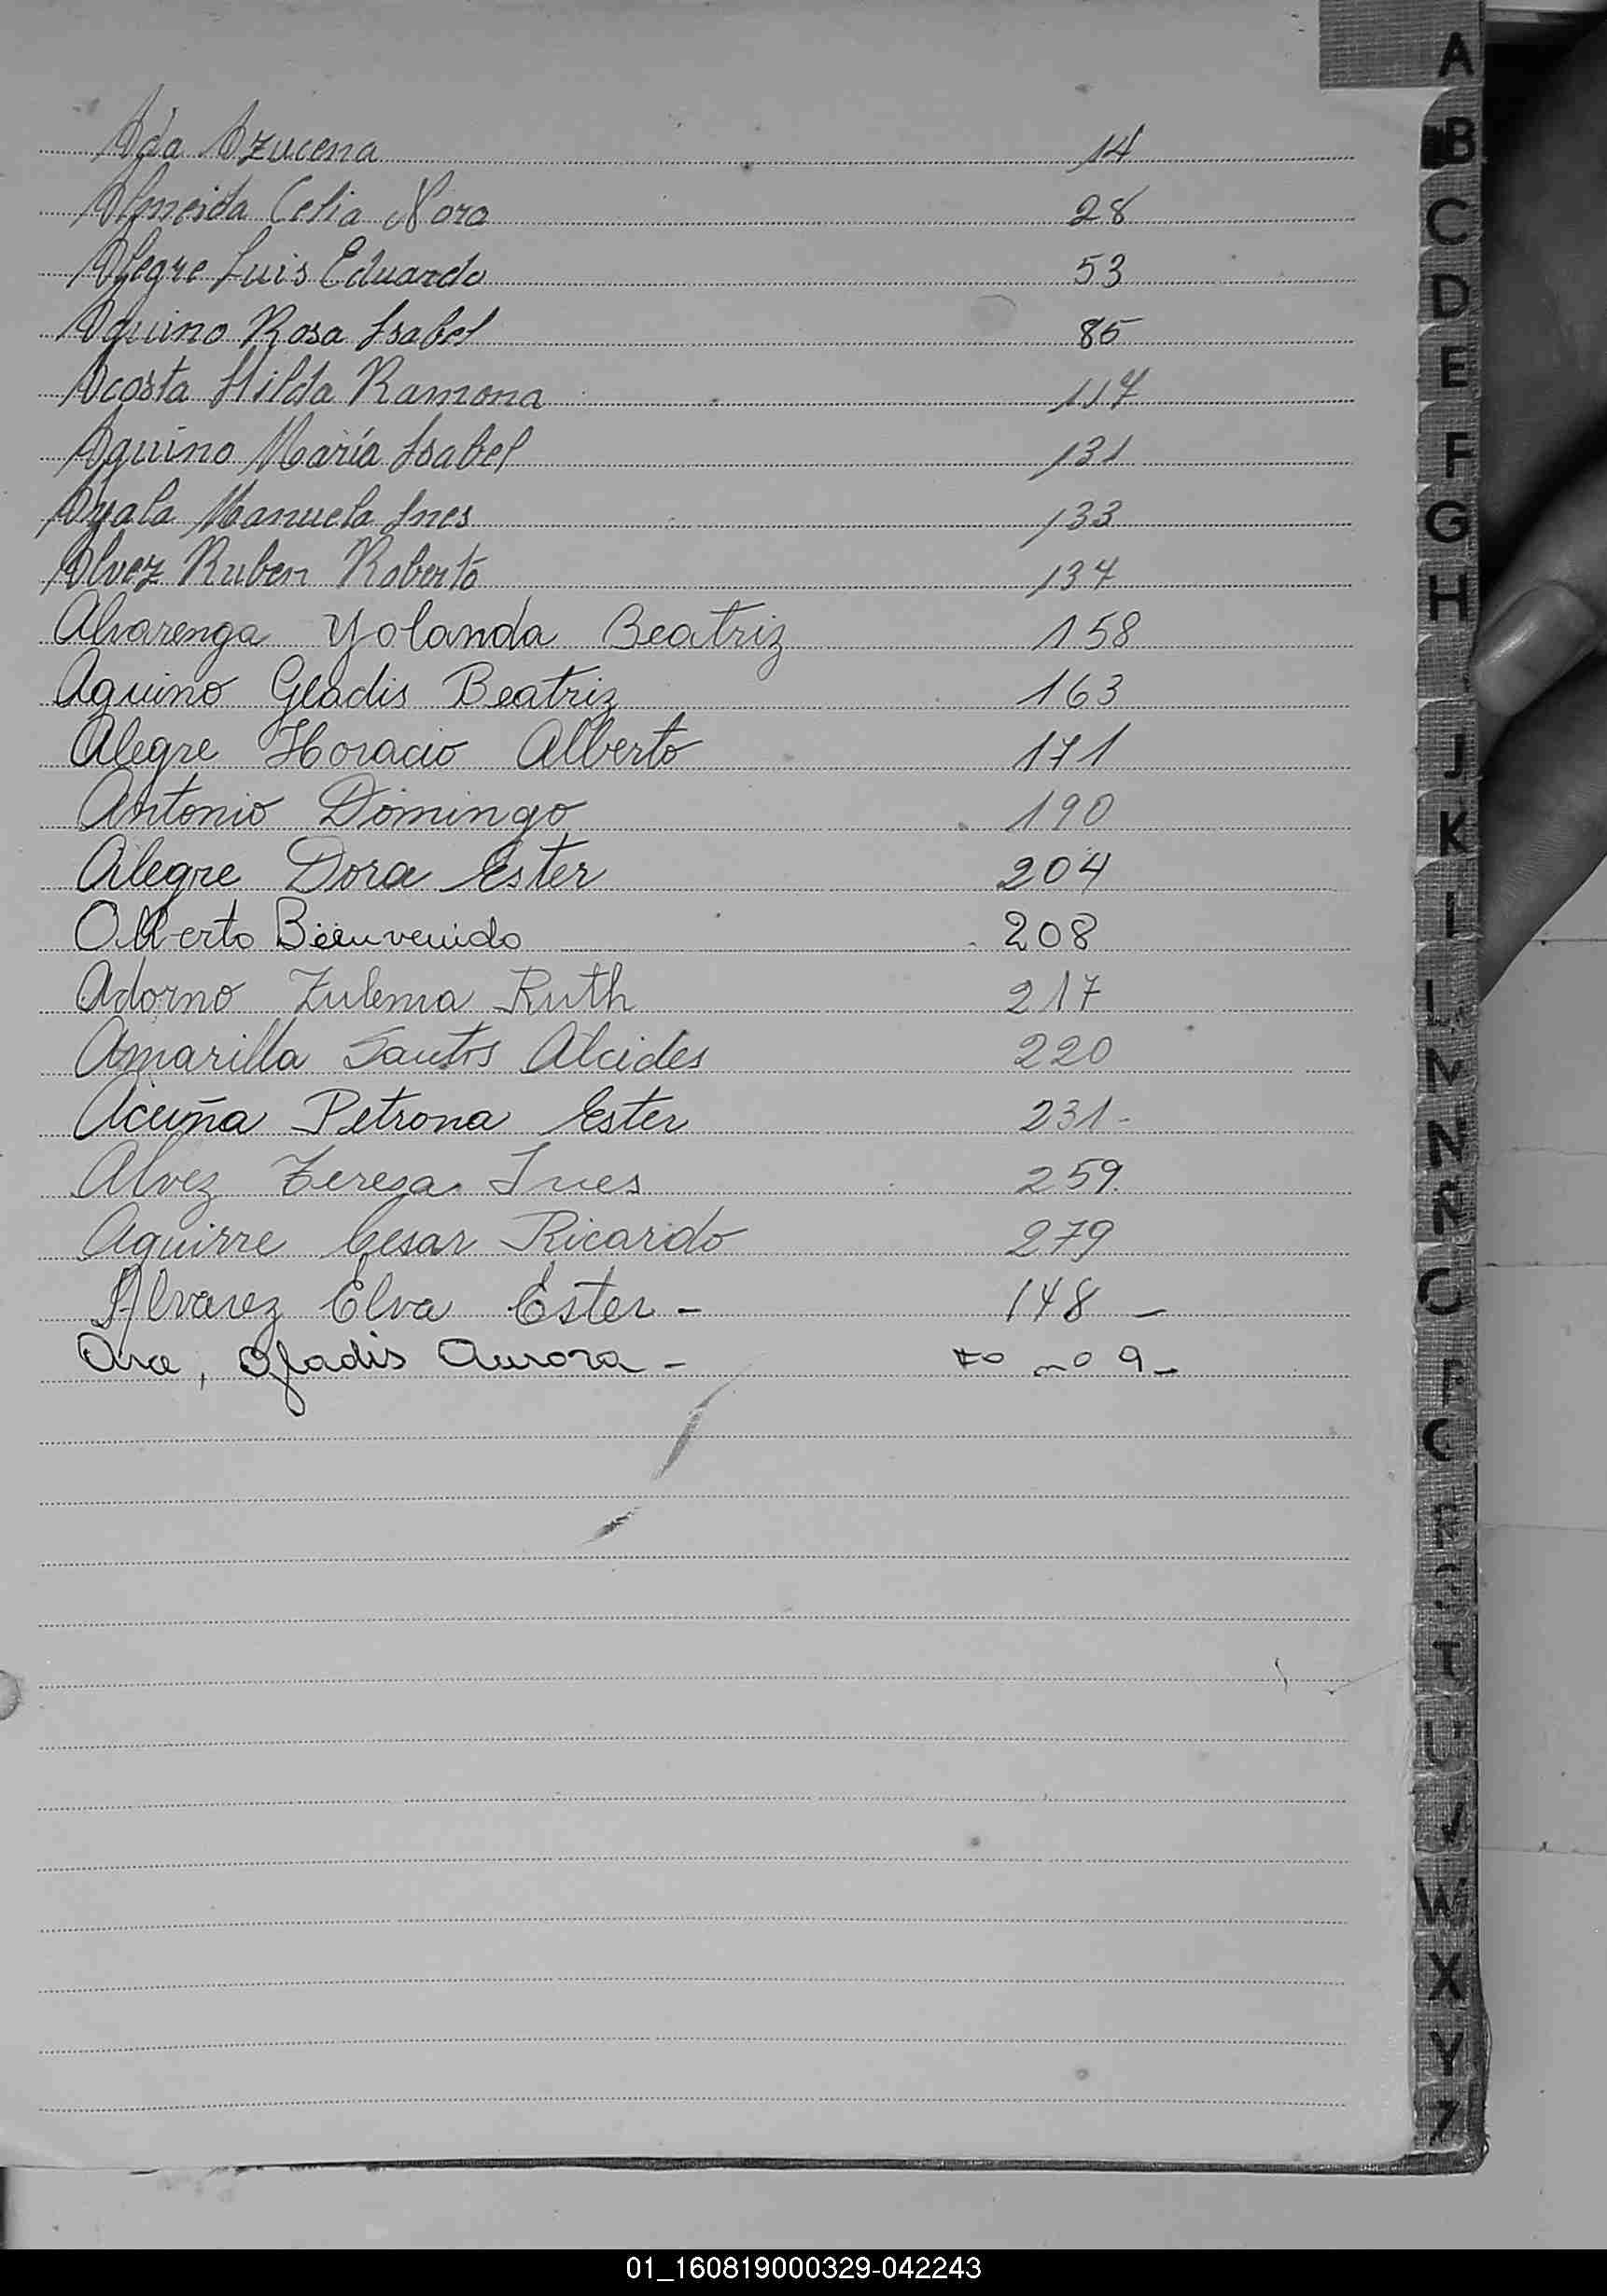 Ada Azucena 14
Almeida Celia Nora 28
Alegre Luis Eduardo 53
Aquino Rosa Isabel 85
Acosta Hilda Ramona 117
Aquino María Isabel 131
Ayala Manuela Ines 133
Alvez Ruben Roberto 134
Alvarenga Yolanda Beatriz 158
Aquino Gladis Beatriz 163
Alegre Horacio Alberto 171
Antonio Domingo 190
Alegre Dora Ester 204
Alberto Bienvenido 208
Adorno Zulema Ruth 217
Amarilla Santos Alcides 220
Acuña Petrona Ester 231-
Alvez Teresa Ines 259.
Aguirre Cesar Ricardo 279
Alvarez Elva Ester - 148 -
Ara, Gladis Aurora - Fº nº 9-
A
B
C
D
E
F
G
H
J
K
L
M
N
Ñ
O
P
Q
R
T
U
V
W
X
Y
Z
01_160819000329-042243